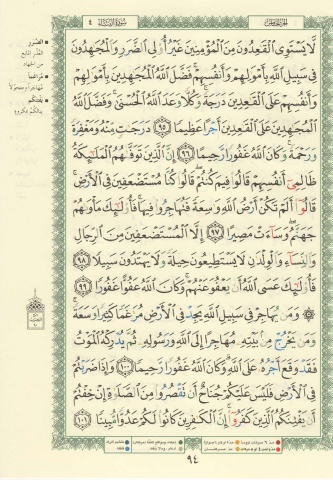 الجزء الخامس
سورة النساء
٤
لَّا يَسْتَوِى الْقَٰعِدُونَ مِنَ الْمُؤْمِنِينَ غَيْرُ أُو۟لِى الضَّرَرِ وَالْمُجَٰهِدُونَ
فِى سَبِيلِ اللَّهِ بِأَمْوَٰلِهِمْ وَأَنفُسِهِمْ فَضَّلَ اللَّهُ الْمُجَٰهِدِينَ بِأَمْوَٰلِهِمْ
وَأَنفُسِهِمْ عَلَى الْقَٰعِدِينَ دَرَجَةً وَكُلًّا وَعَدَ اللَّهُ الْحُسْنَىٰ وَفَضَّلَ اللَّهُ
الْمُجَٰهِدِينَ عَلَى الْقَٰعِدِينَ أَجْرًا عَظِيمًا ٩٥ دَرَجَٰتٍ مِّنْهُ وَمَغْفِرَةً
وَرَحْمَةً وَكَانَ اللَّهُ غَفُورًا رَّحِيمًا ٩٦ إِنَّ الَّذِينَ تَوَفَّىٰهُمُ الْمَلَٰٓئِكَةُ
ظَالِمِىٓ أَنفُسِهِمْ قَالُوا۟ فِيمَ كُنتُمْ قَالُوا۟ كُنَّا مُسْتَضْعَفِينَ فِى الْأَرْضِ
قَالُوٓا۟ أَلَمْ تَكُنْ أَرْضُ اللَّهِ وَٰسِعَةً فَتُهَاجِرُوا۟ فِيهَا فَأُو۟لَٰٓئِكَ مَأْوَىٰهُمْ
جَهَنَّمُ وَسَآءَتْ مَصِيرًا ٩٧ إِلَّا الْمُسْتَضْعَفِينَ مِنَ الرِّجَالِ
وَالنِّسَآءِ وَالْوِلْدَٰنِ لَا يَسْتَطِيعُونَ حِيلَةً وَلَا يَهْتَدُونَ سَبِيلًا ٩٨
فَأُو۟لَٰٓئِكَ عَسَى اللَّهُ أَن يَعْفُوَ عَنْهُمْ وَكَانَ اللَّهُ عَفُوًّا غَفُورًا ٩٩
۞ وَمَن يُهَاجِرْ فِى سَبِيلِ اللَّهِ يَجِدْ فِى الْأَرْضِ مُرَٰغَمًا كَثِيرًا وَسَعَةً
وَمَن يَخْرُجْ مِنۢ بَيْتِهِ مُهَاجِرًا إِلَى اللَّهِ وَرَسُولِهِ ثُمَّ يُدْرِكْهُ الْمَوْتُ
فَقَدْ وَقَعَ أَجْرُهُ عَلَى اللَّهِ وَكَانَ اللَّهُ غَفُورًا رَّحِيمًا ١٠٠ وَإِذَا ضَرَبْتُمْ
فِى الْأَرْضِ فَلَيْسَ عَلَيْكُمْ جُنَاحٌ أَن تَقْصُرُوا۟ مِنَ الصَّلَوٰةِ إِنْ خِفْتُمْ
أَن يَفْتِنَكُمُ الَّذِينَ كَفَرُوٓا۟ إِنَّ الْكَٰفِرِينَ كَانُوا۟ لَكُمْ عَدُوًّا مُّبِينًا ١٠١
٩٤